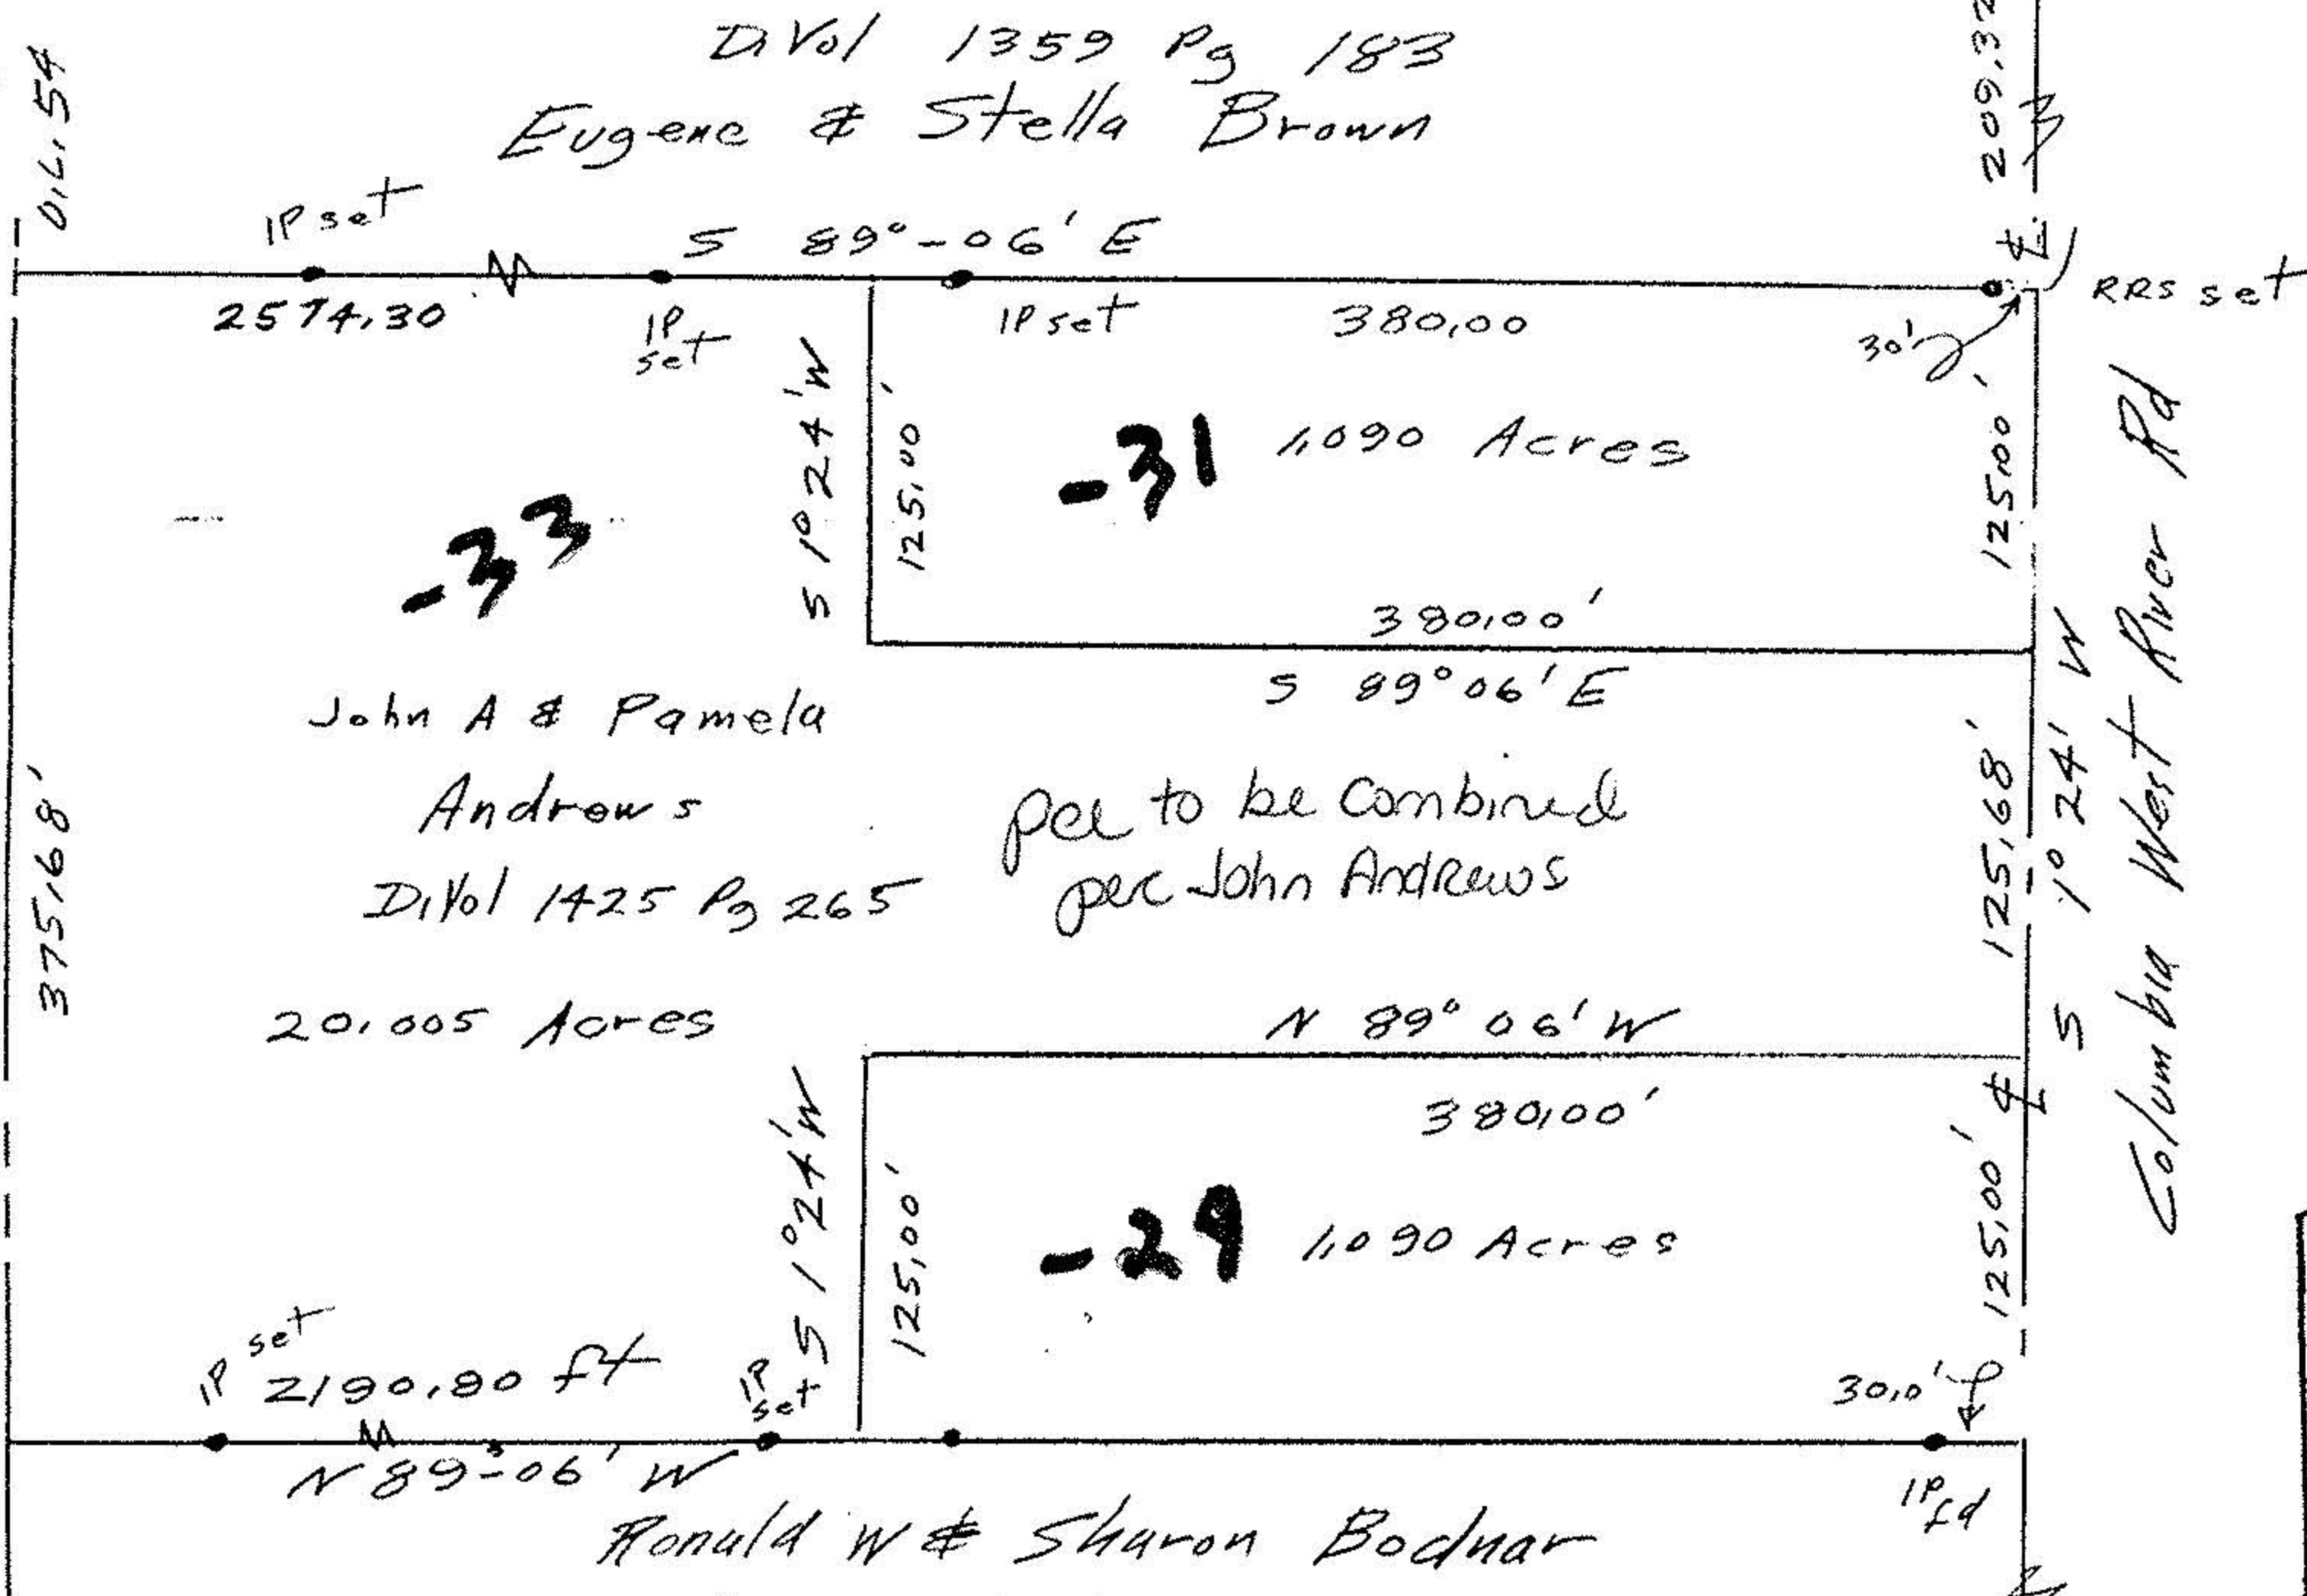 D.Vol 1359 Pg 183
Eugene & Stella Brown
209.32
IP set
S 89°-06' E
2574.30
IP
set
IP set
380.00
30'
RRS set
S 1° 24' W
125.00'
-31
1.090 Acres
125.00'
-33
380.00'
S 89° 06' E
John A & Pamela
Andrews
D.Vol 1425 Pg 265
20.005 Acres
375.68'
pcl to be Combined
per John Andrews
125.68'
S 1° 24' W
Columbia West River Rd
N 89° 06' W
380.00'
S 1° 24' W
125.00'
-29
1.090 Acres
125.00'
IP set
2190.80 ft
IP
set
30.0'
N 89°-06' W
IP fd
Ronald W & Sharon Bodnar